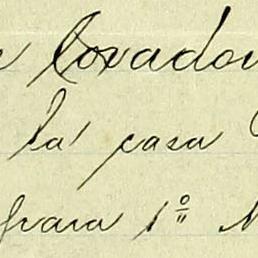 e Covadon
la casa
para 1º N